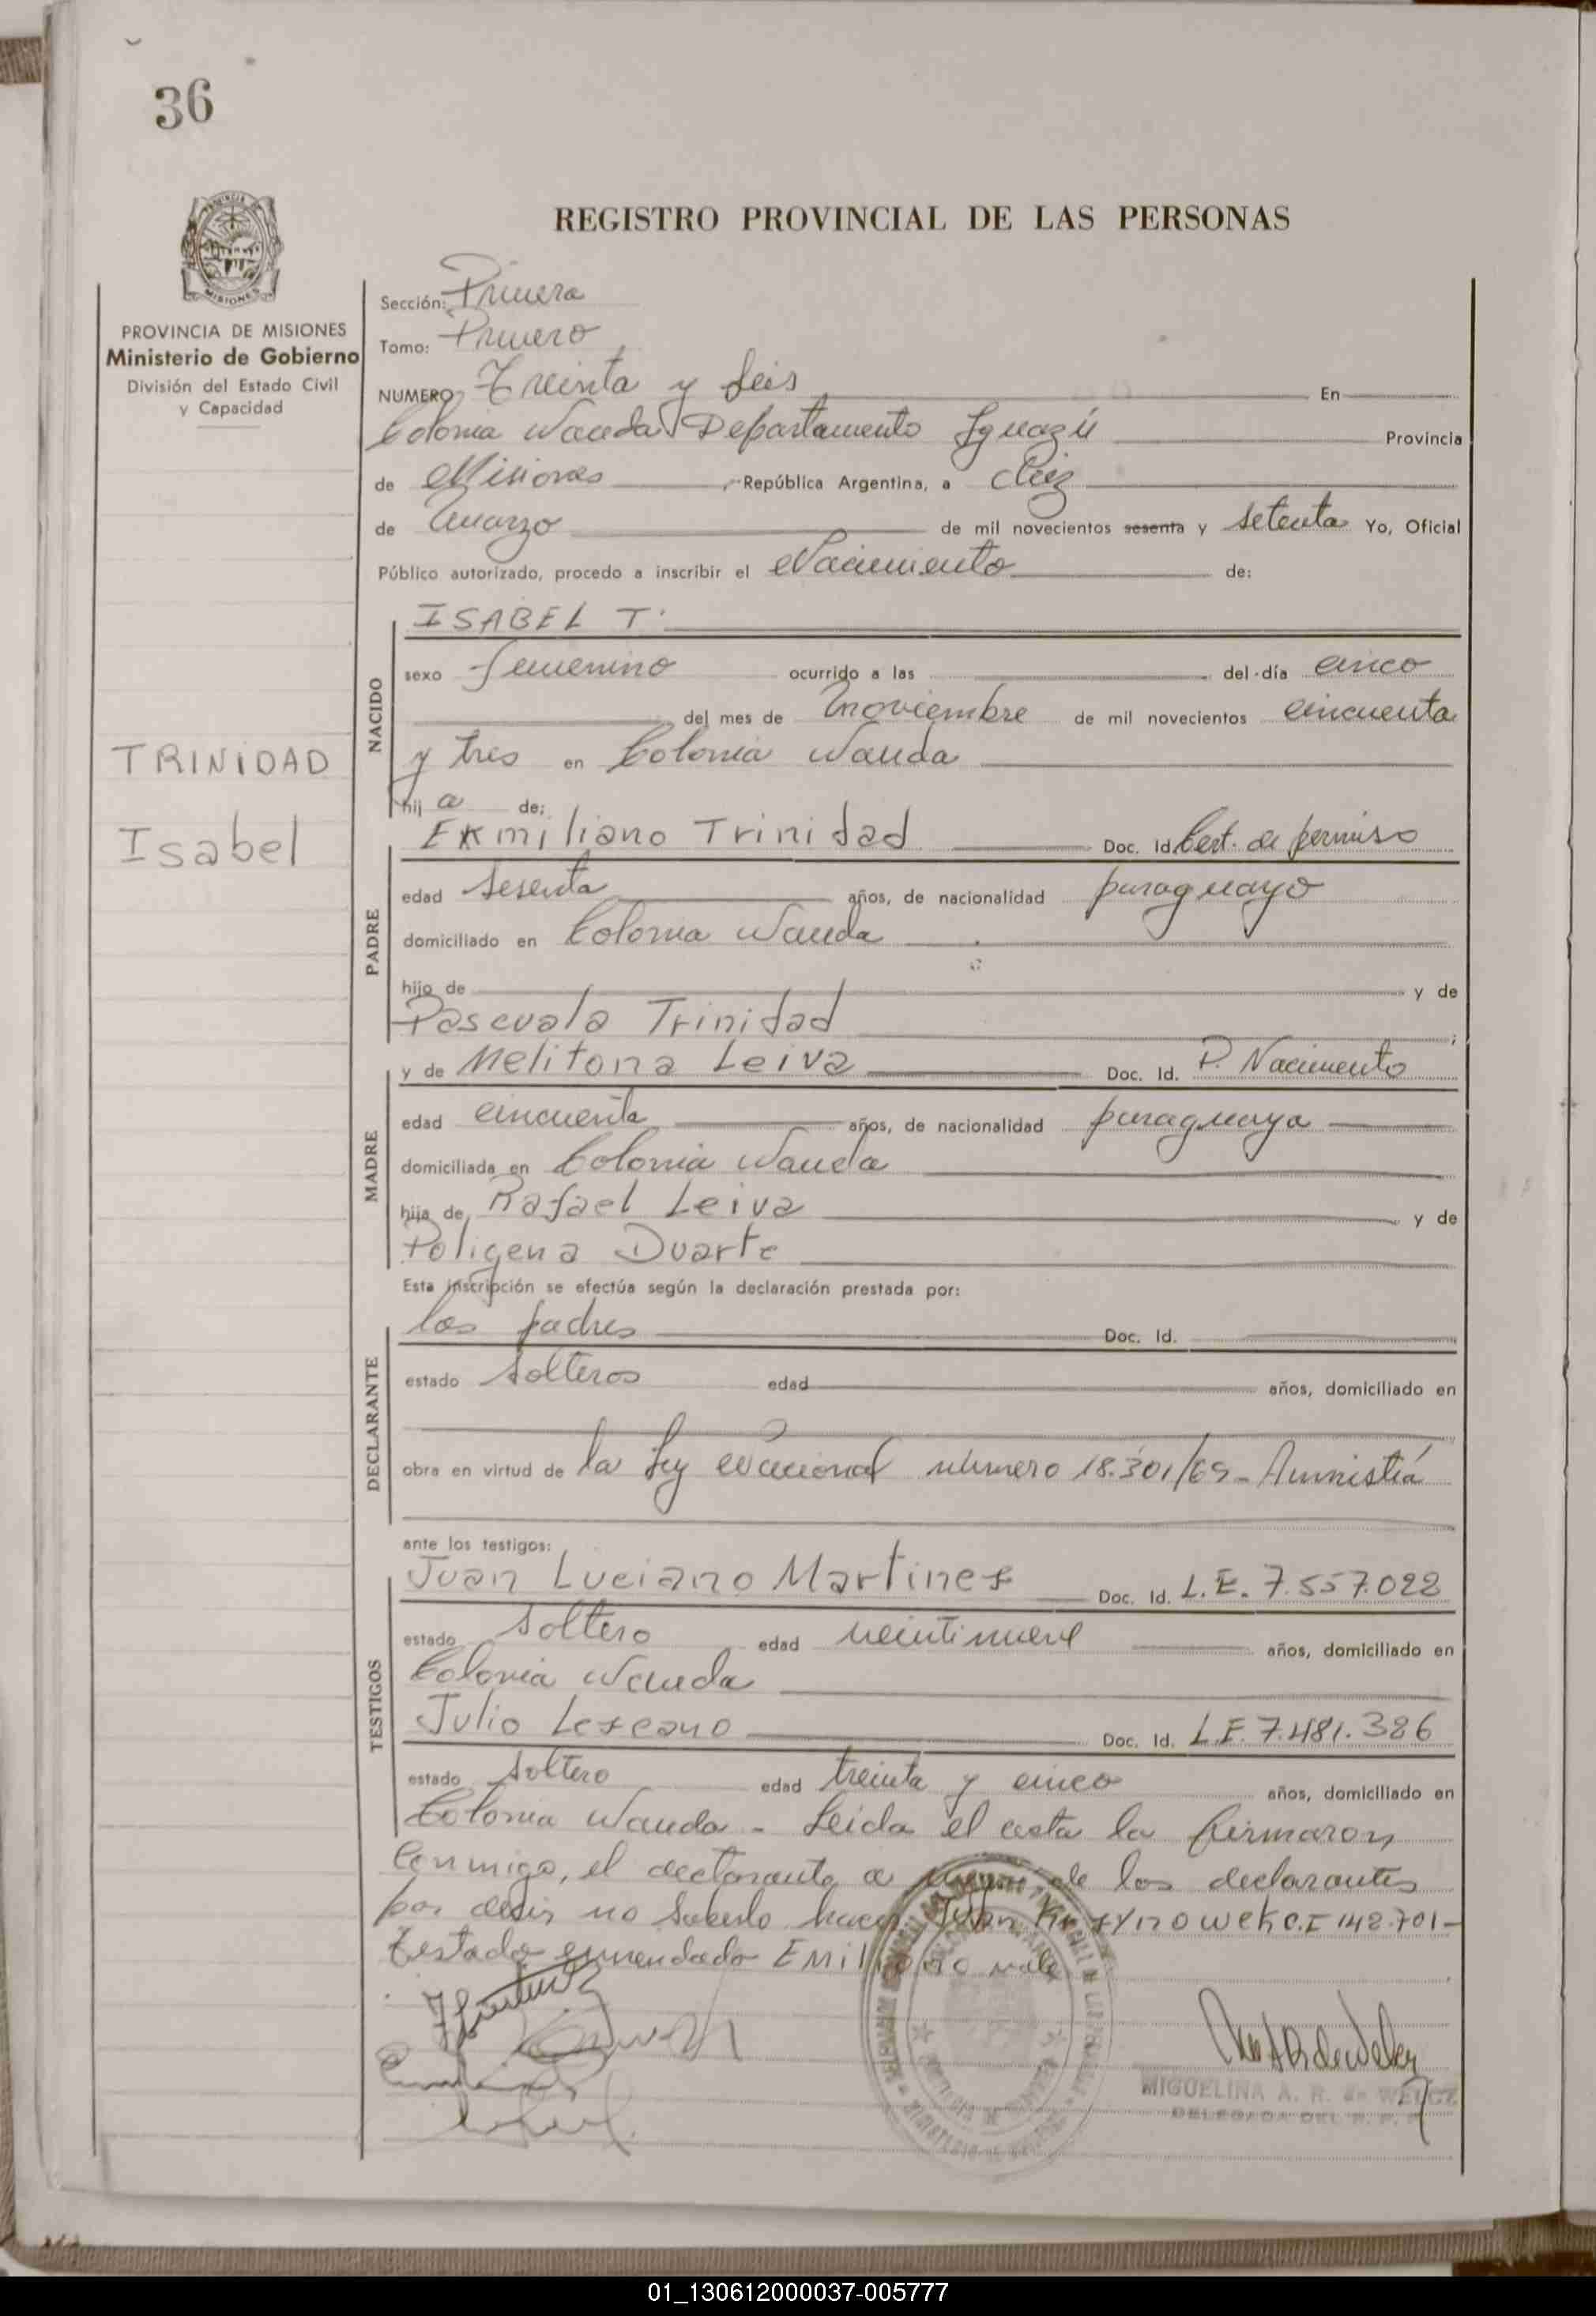 36
REGISTRO PROVINCIAL DE LAS PERSONAS
PROVINCIA DE MISIONES
Ministerio de Gobierno
División del Estado Civil
y Capacidad
TRINIDAD
Isabel
Sección: Primera
Tomo: Primero
NUMERO Treinta y Seis En
Colonia Wanda Departamento Iguazú Provincia
de Misiones, República Argentina, a diez
de marzo de mil novecientos sesenta y setenta Yo, Oficial
Público autorizado, procedo a inscribir el Nacimiento de:
NACIDO
ISABEL T.
sexo femenino ocurrido a las del día cinco
del mes de noviembre de mil novecientos cincuenta
y tres en Colonia Wanda
hij a de:
PADRE
Exmiliano Trinidad Doc. Id. Cert. de permiso
edad sesenta años, de nacionalidad paraguayo
domiciliado en Colonia Wanda
hijo de y de
Pascuala Trinidad ;
MADRE
y de Melitona Leiva Doc. Id. P. Nacimiento
edad cincuenta años, de nacionalidad paraguaya
domiciliada en Colonia Wanda
hija de Rafael Leiva y de
Poligena Duarte
Esta inscripción se efectúa según la declaración prestada por:
DECLARANTE
los padres Doc. Id.
estado solteros edad años, domiciliado en
obra en virtud de la Ley Nacional número 18.301/69- Amnistía
ante los testigos:
TESTIGOS
Juan Luciano Martinez Doc. Id. L.E. 7.557.022
estado soltero edad veintinueve años, domiciliado en
Colonia Wanda
Julio Lezcano Doc. Id. L.E. 7.481.386
estado soltero edad treinta y cinco años, domiciliado en
Colonia Wanda - Leida el acta la firmaron
conmigo, el declarante a ruego de los declarantes
por decir no saberlo hacer C.I 142.701-
Testado enmendado Emiliano vale
MIGUELINA A. R. de
DELEGADA DEL R. P.
01_130612000037-005777